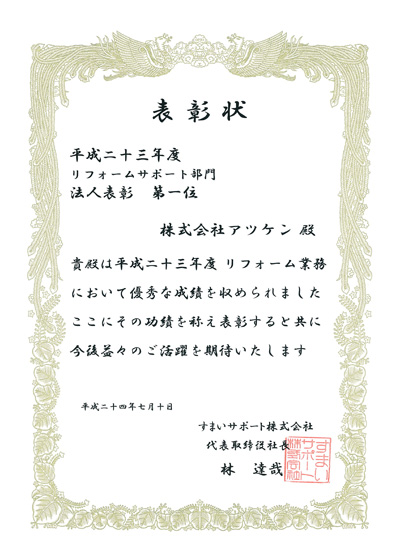 表彰状
平成二十三年度
リフォームサポート部門
法人表彰 第一位
株式会社アツケン 殿
貴殿は平成二十三年度 リフォーム業務
において優秀な成績を収められました
ここにその功績を称え表彰すると共に
今後益々のご活躍を期待いたします
平成二十四年七月十日
すまいサポート株式会社
代表取締役社長
林 達哉
すまい
サポート
株式会社